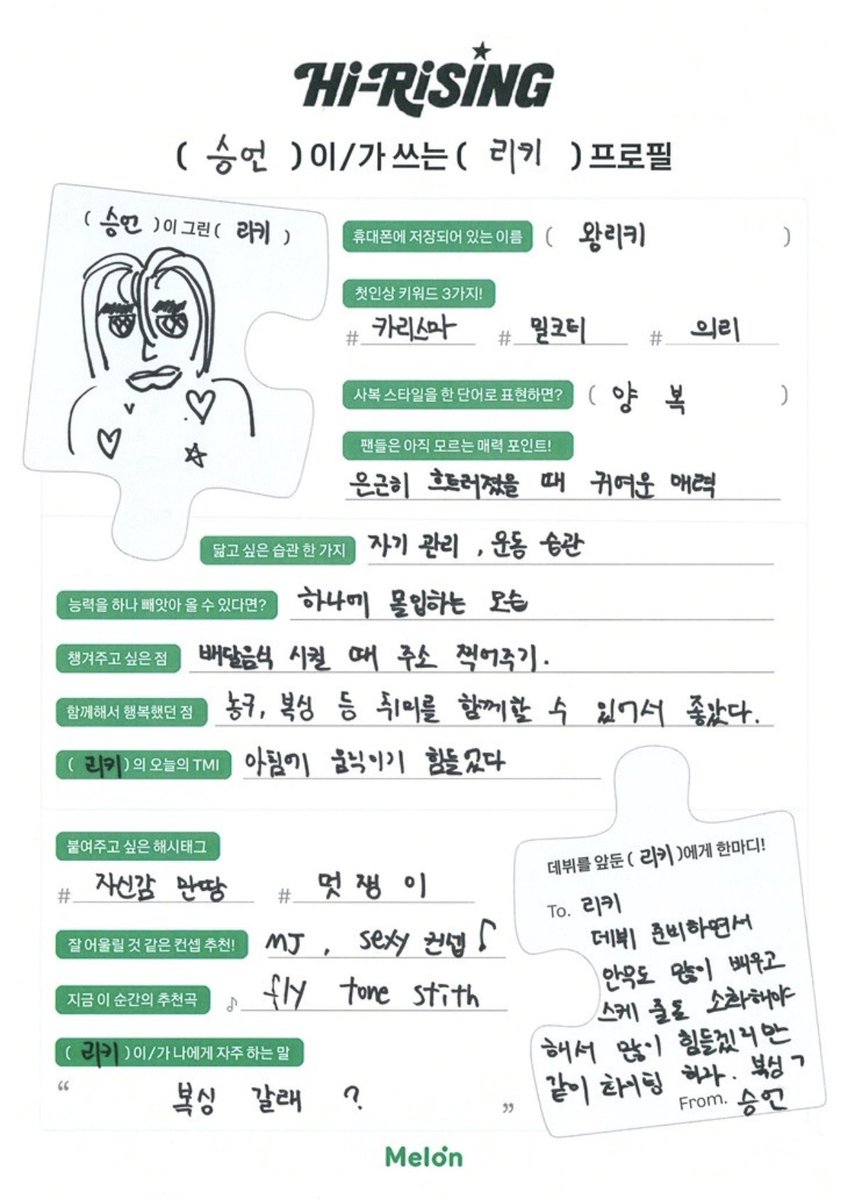 Hi-RiSiNG
( 승언 )이/가 쓰는 ( 리키 )프로필
( 승언 )이 그린 ( 리키 )
휴대폰에 저장되어 있는 이름 ( 왕리키 )
첫인상 키워드 3가지!
# 카리스마 # 밀크티 # 의리
사복 스타일을 한 단어로 표현하면? ( 양 복 )
팬들은 아직 모르는 매력 포인트!
은근히 흐트러졌을 때 귀여운 매력
닮고 싶은 습관 한 가지 자기 관리 , 운동 습관
능력을 하나 빼앗아 올 수 있다면? 하나에 몰입하는 모습
챙겨주고 싶은 점 배달음식 시킬 때 주소 찍어주기.
함께해서 행복했던 점 농구, 복싱 등 취미를 함께할 수 있어서 좋았다.
( 리키 )의 오늘의 TMI 아침에 움직이기 힘들었다
붙여주고 싶은 해시태그
# 자신감 만땅 # 멋 쟁 이
잘 어울릴 것 같은 컨셉 추천! MJ , sexy 컨셉
지금 이 순간의 추천곡 ♪ fly tone stith
( 리키 )이/가 나에게 자주 하는 말
“ 복싱 갈래 ? ”
데뷔를 앞둔 ( 리키 )에게 한마디!
To. 리키
데뷔 준비하면서
안무도 많이 배우고
스케 줄도 소화해야
해서 많이 힘들겠지만
같이 화이팅 하자. 복싱ㄱ
From. 승언
Melon